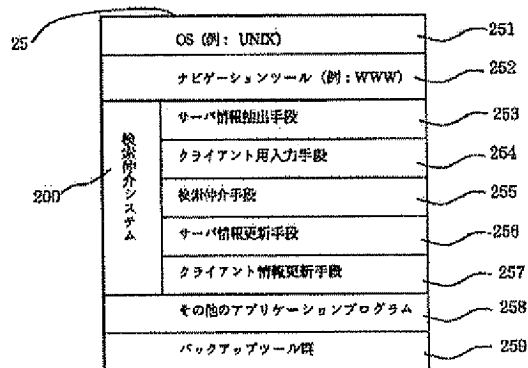 25
OS (例: UNIX)
251
ナビゲーションツール (例:WWW)
252
サーバ情報抽出手段
253
クライアント用入力手段
254
検索仲介システム
200
検索仲介手段
255
サーバ情報更新手段
256
クライアント情報更新手段
257
その他のアプリケーションプログラム
258
バックアップツール群
259